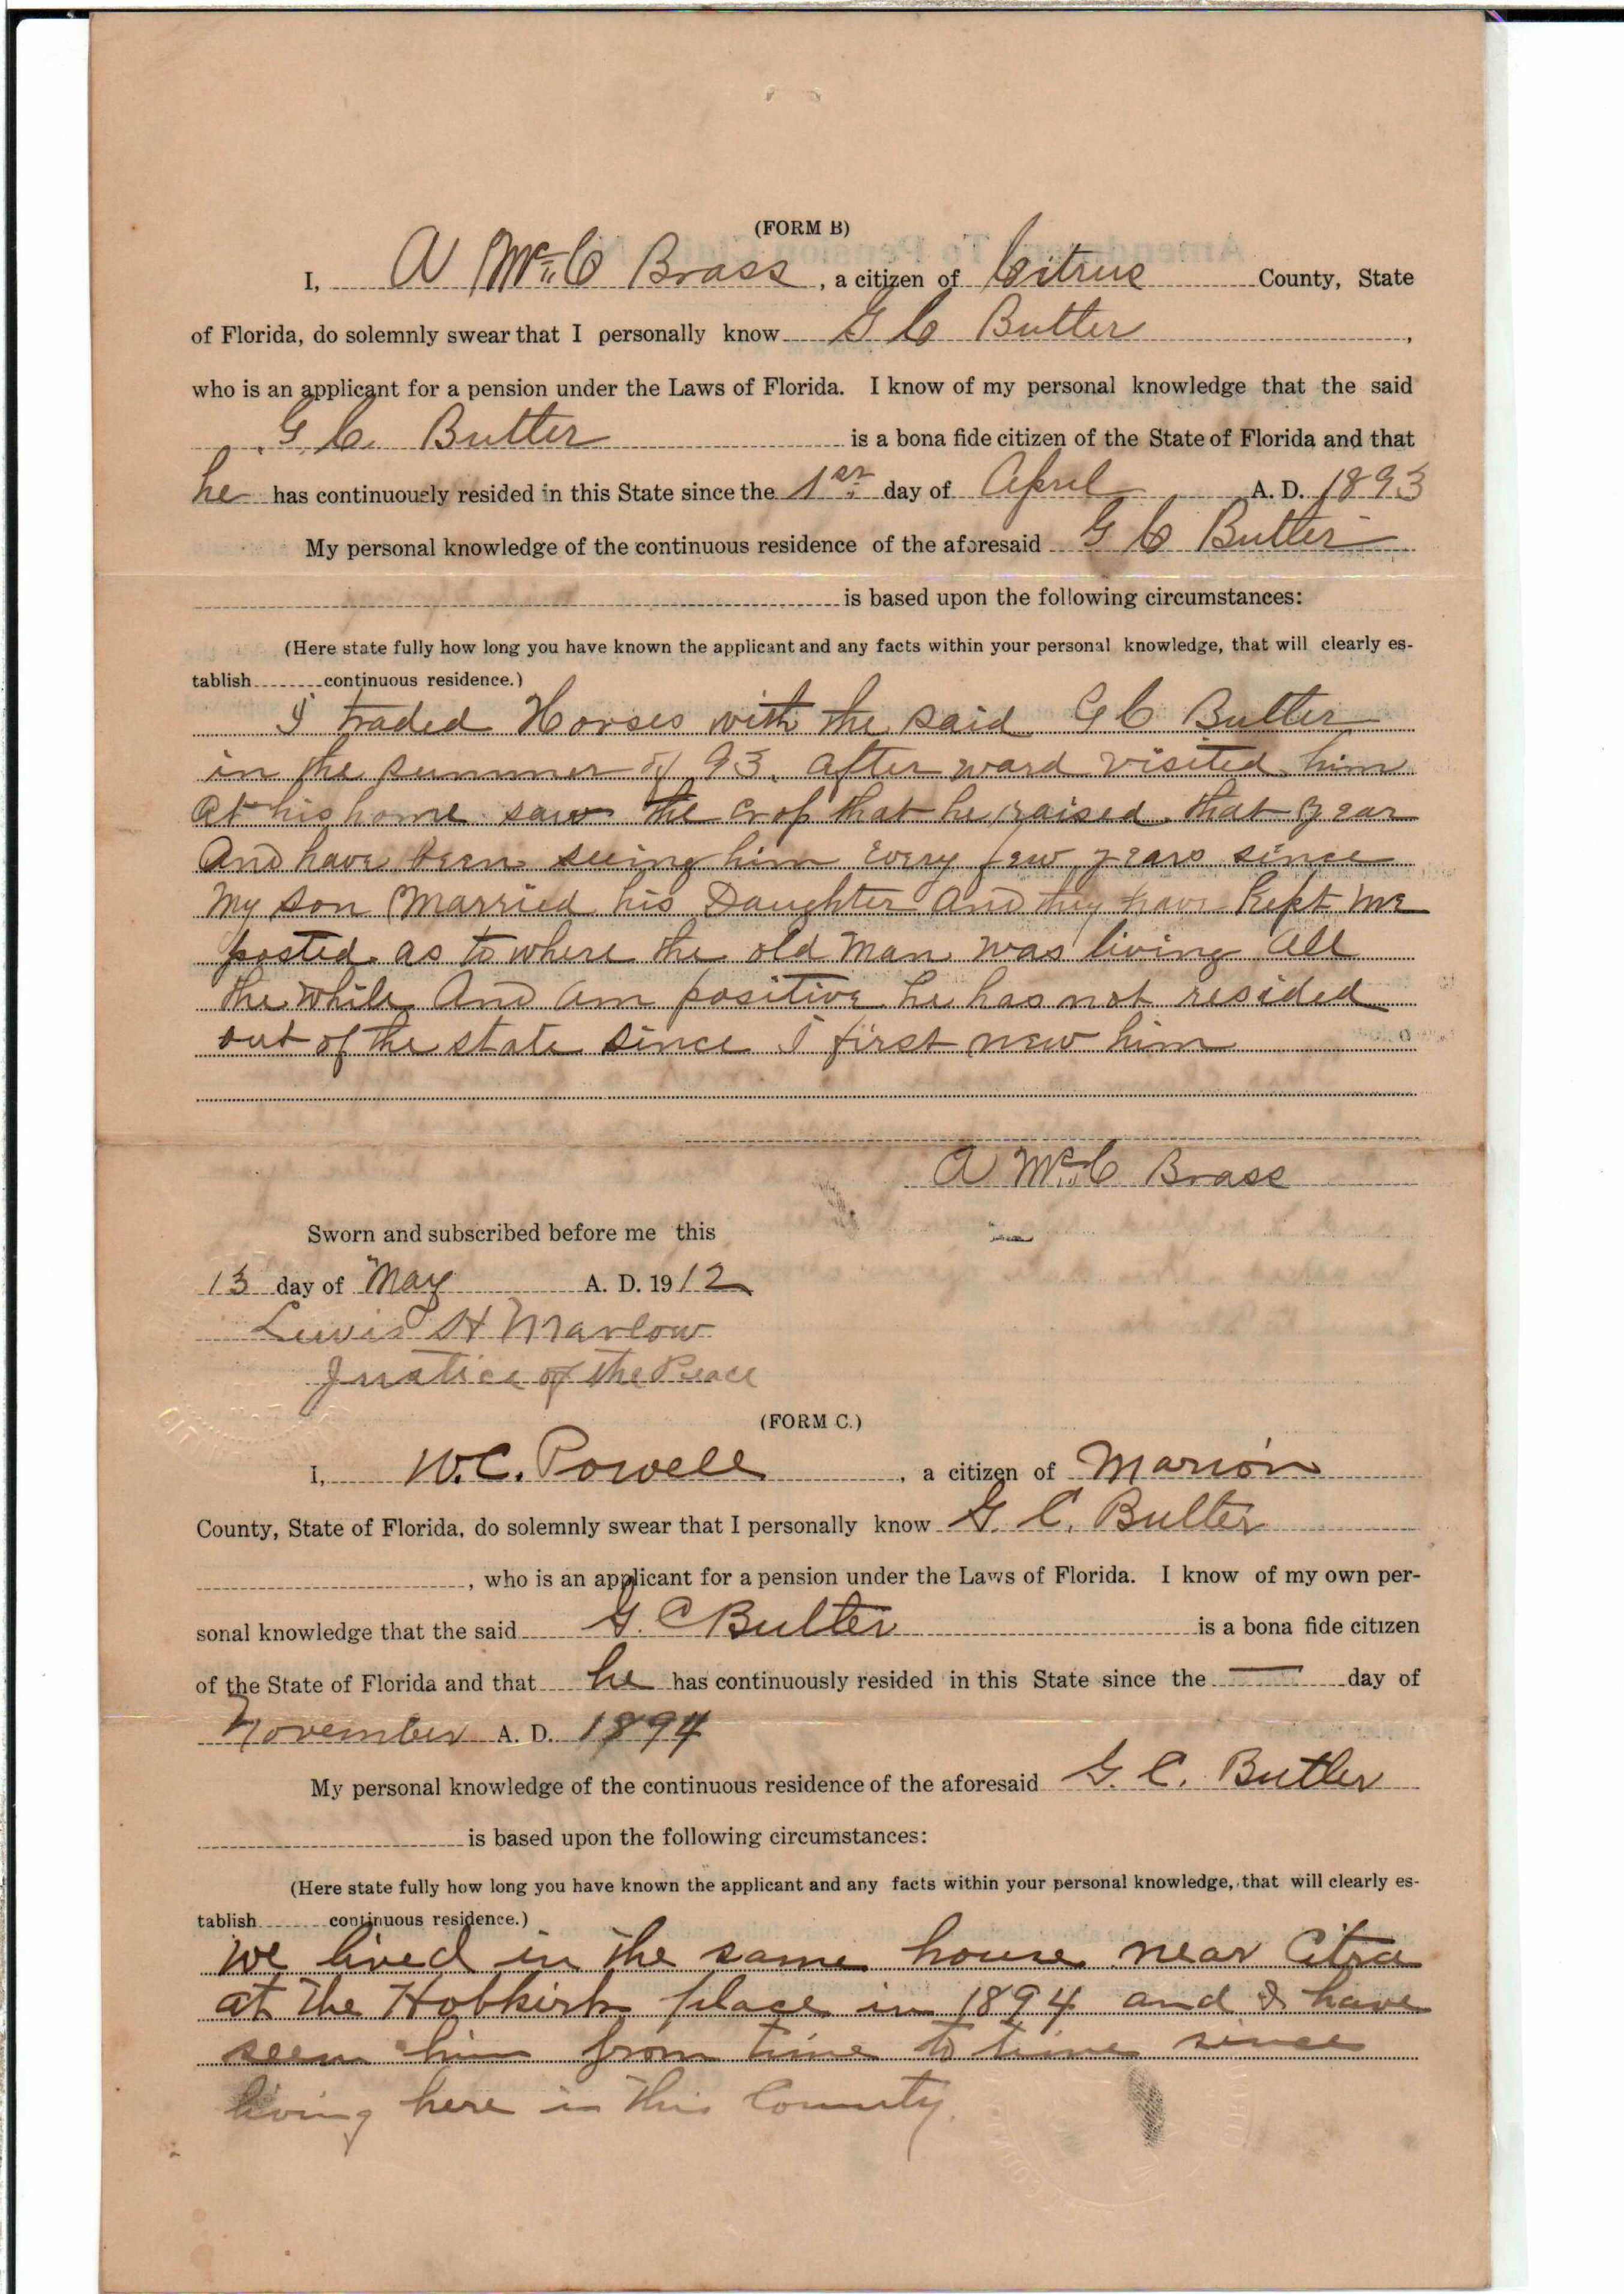 (FORM B)
I, A McC Brass, a citizen of Citrus County, State
of Florida, do solemnly swear that I personally know G C Butler,
who is an applicant for a pension under the Laws of Florida. I know of my personal knowledge that the said
G. C. Butler is a bona fide citizen of the State of Florida and that
he has continuously resided in this State since the 1st day of April A. D. 1893
My personal knowledge of the continuous residence of the aforesaid G C Butler
is based upon the following circumstances:
(Here state fully how long you have known the applicant and any facts within your personal knowledge, that will clearly es-
tablish continuous residence.)
I traded Horses with the said G C Butler
in the summer of 93. after ward visited him
at his home saw the crop that he raised that year
And have been seeing him Every few years since
My son Married his Daughter And they have Kept me
posted as to where the old man was living all
the while And am positive he has not resided
out of the state since I first new him
A McC Brass
Sworn and subscribed before me this
13 day of May A. D. 1912
Lewis H Marlow
Justice of the Peace
(FORM C.)
I, W.C. Powell, a citizen of Marion
County, State of Florida, do solemnly swear that I personally know G. C. Butler
, who is an applicant for a pension under the Laws of Florida. I know of my own per-
sonal knowledge that the said G. C Butler is a bona fide citizen
of the State of Florida and that he has continuously resided in this State since the — day of
November A. D. 1894
My personal knowledge of the continuous residence of the aforesaid G. C. Butler
is based upon the following circumstances:
(Here state fully how long you have known the applicant and any facts within your personal knowledge, that will clearly es-
tablish continuous residence.)
We lived in the same house near Citra
at the Hobkirk place in 1894 and I have
seen him from time to time since
living here in this County.